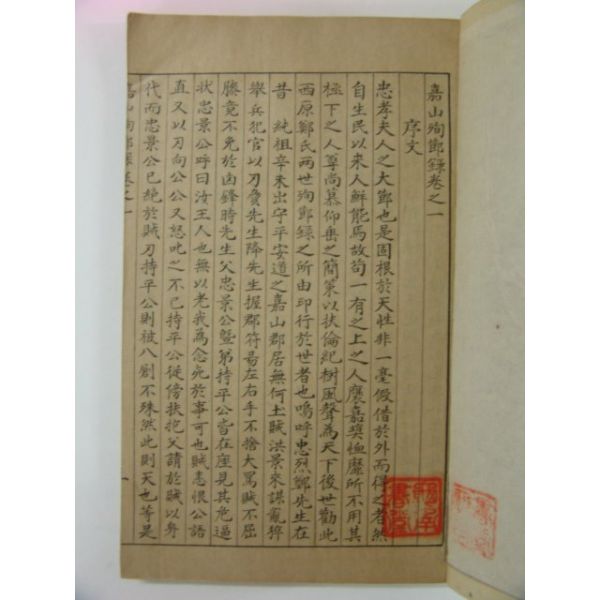 嘉山殉節錄卷之一
序文
忠孝夫人之大節也是固根於天性非一毫假借於外而得之者然
自生民以來人鮮能焉故苟一有之上之人襃嘉奬恤靡所不用其
極下之人尊尚慕仰垂之簡策以扶倫紀樹風聲為天下後世勸此
西原鄭氏兩世殉節錄之所由印行於世者也嗚呼忠烈鄭先生在
昔 純祖辛未出守平安道之嘉山郡居無何土賊洪景來謀亂猝
舉兵犯官以刃脅先生降先生握郡符昜左右手不捨大罵賊不屈
膝竟不免於凶鋒時先生父忠景公曁弟持平公皆在座見其危逼
狀忠景公呼曰汝王人也無以老我為念死於事可也賊恚恨公語
直又以刃向公公又怒叱之不已持平公從傍扶抱父請於賊以身
代而忠景公已絶於賊刀持平公則被八創不殊然此則天也等是
嘉山殉節錄卷之一
一